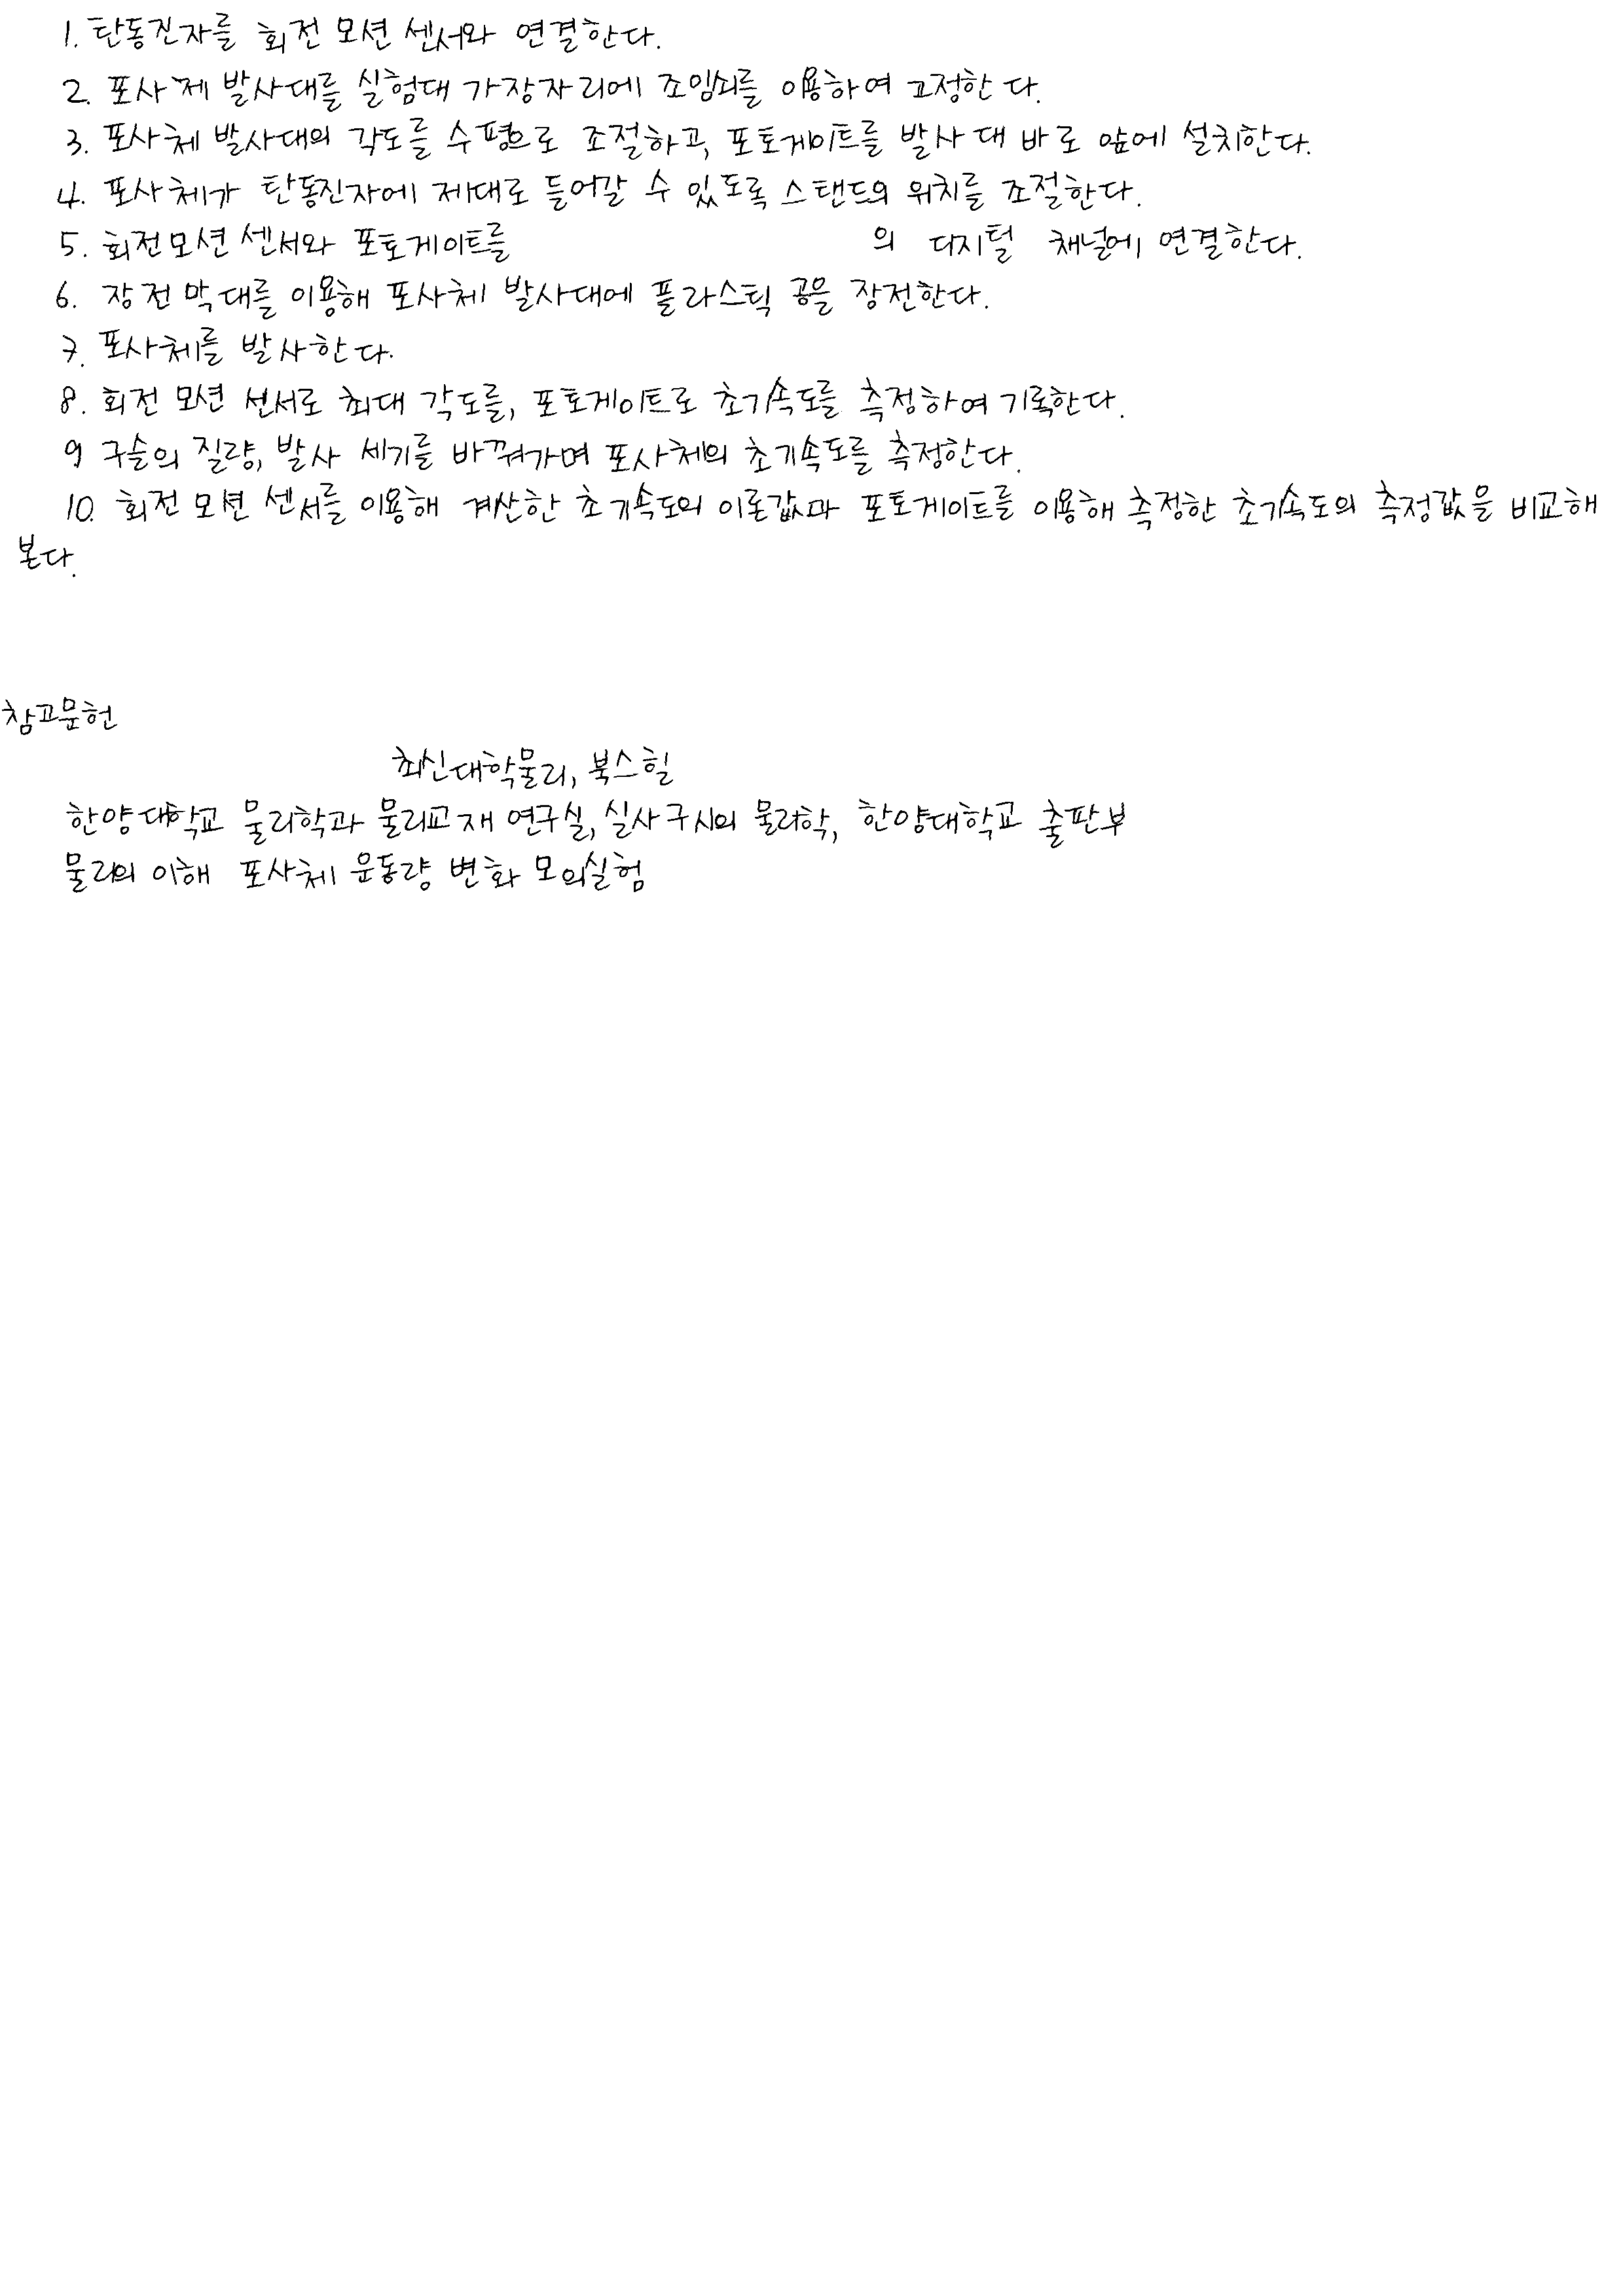 1. 탄동진자를 회전 모션 센서와 연결한다.
2. 포사체 발사대를 실험대 가장자리에 조임쇠를 이용하여 고정한다.
3. 포사체 발사대의 각도를 수평으로 조절하고, 포토게이트를 발사대 바로 앞에 설치한다.
4. 포사체가 탄동진자에 제대로 들어갈 수 있도록 스탠드의 위치를 조절한다.
5. 회전모션 센서와 포토게이트를 의 디지털 채널에 연결한다.
6. 장전 막대를 이용해 포사체 발사대에 플라스틱 공을 장전한다.
7. 포사체를 발사한다.
8. 회전 모션 센서로 최대 각도를, 포토게이트로 초기속도를 측정하여 기록한다.
9 구슬의 질량, 발사 세기를 바꿔가며 포사체의 초기속도를 측정한다.
10. 회전 모션 센서를 이용해 계산한 초기속도의 이론값과 포토게이트를 이용해 측정한 초기속도의 측정값을 비교해
본다.
참고문헌
최신대학물리, 북스힐
한양대학교 물리학과 물리교재 연구실, 실사구시의 물리학, 한양대학교 출판부
물리의 이해 포사체 운동량 변화 모의실험